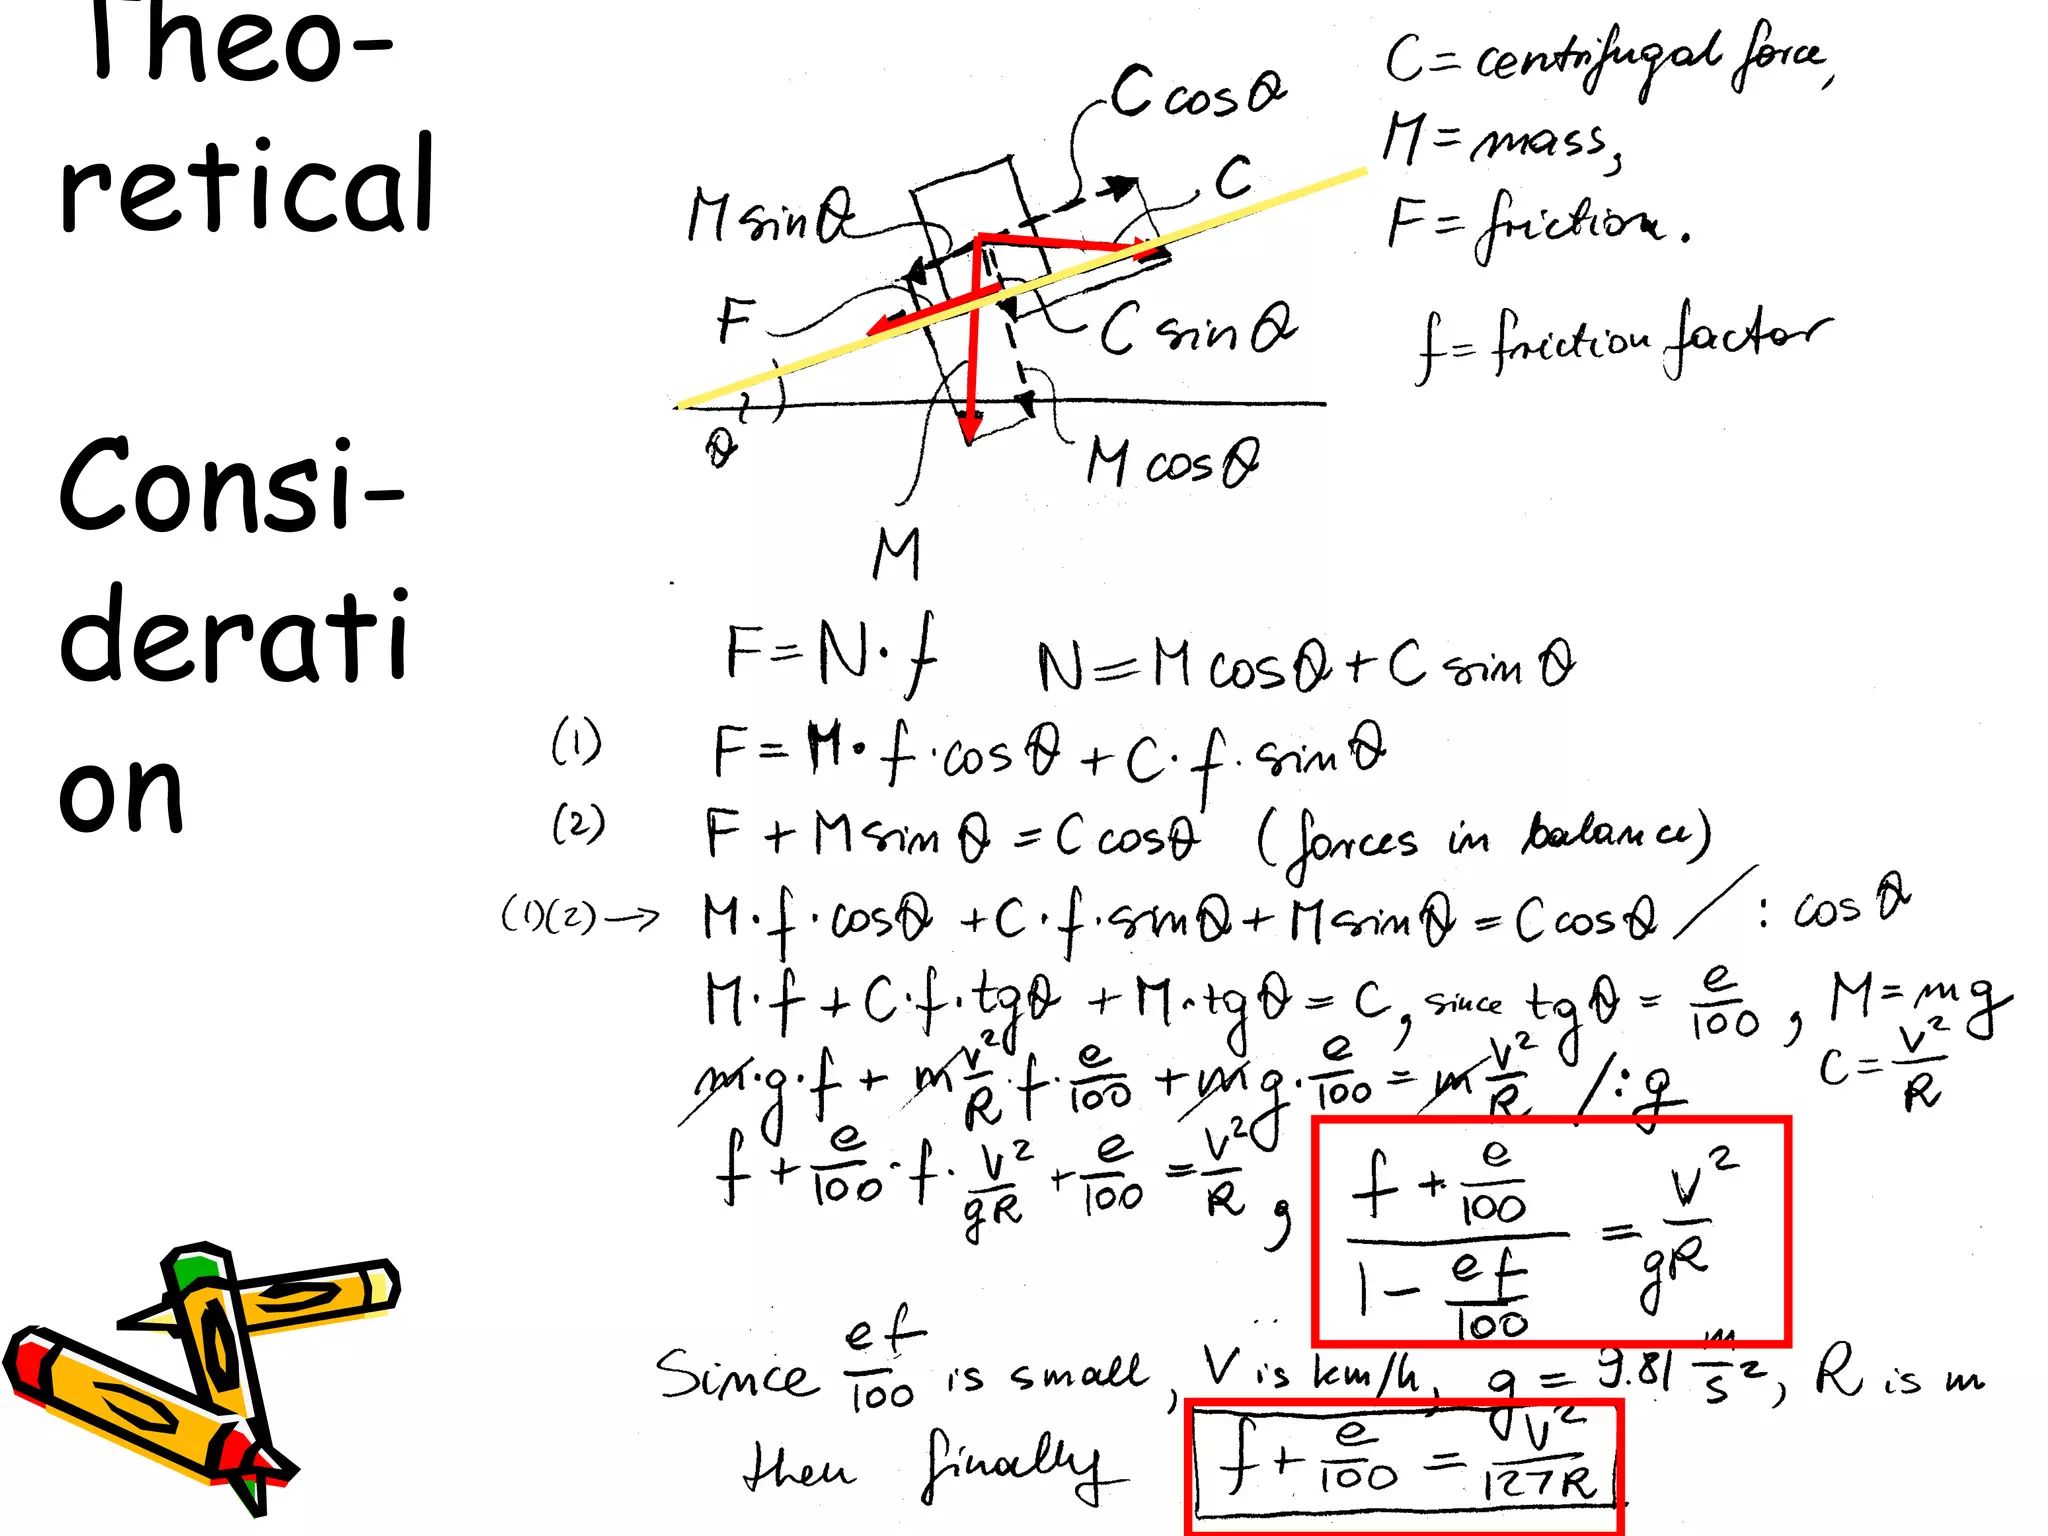 Theo-
retical
Consi-
derati
on
C = centrifugal force,
M = mass,
F = friction.
f = friction factor
C cos θ
C
M sin θ
F
C sin θ
θ
M cos θ
M
F = N · f N = M cos θ + C sin θ
(1) F = M · f · cos θ + C · f · sin θ
(2) F + M sin θ = C cos θ (forces in balance)
(1)(2) → M · f · cos θ + C · f · sin θ + M sin θ = C cos θ / : cos θ
M · f + C · f · tg θ + M · tg θ = C, since tg θ = e/100, M = mg
C = v²/R
m · g · f + m v²/R · f · e/100 + m g · e/100 = m v²/R / : g
f + e/100 · f · v²/gR + e/100 = v²/R, (f + e/100)/(1 - ef/100) = v²/gR
Since ef/100 is small, V is km/h, g = 9.81 m/s², R is m
then finally f + e/100 = v²/127R